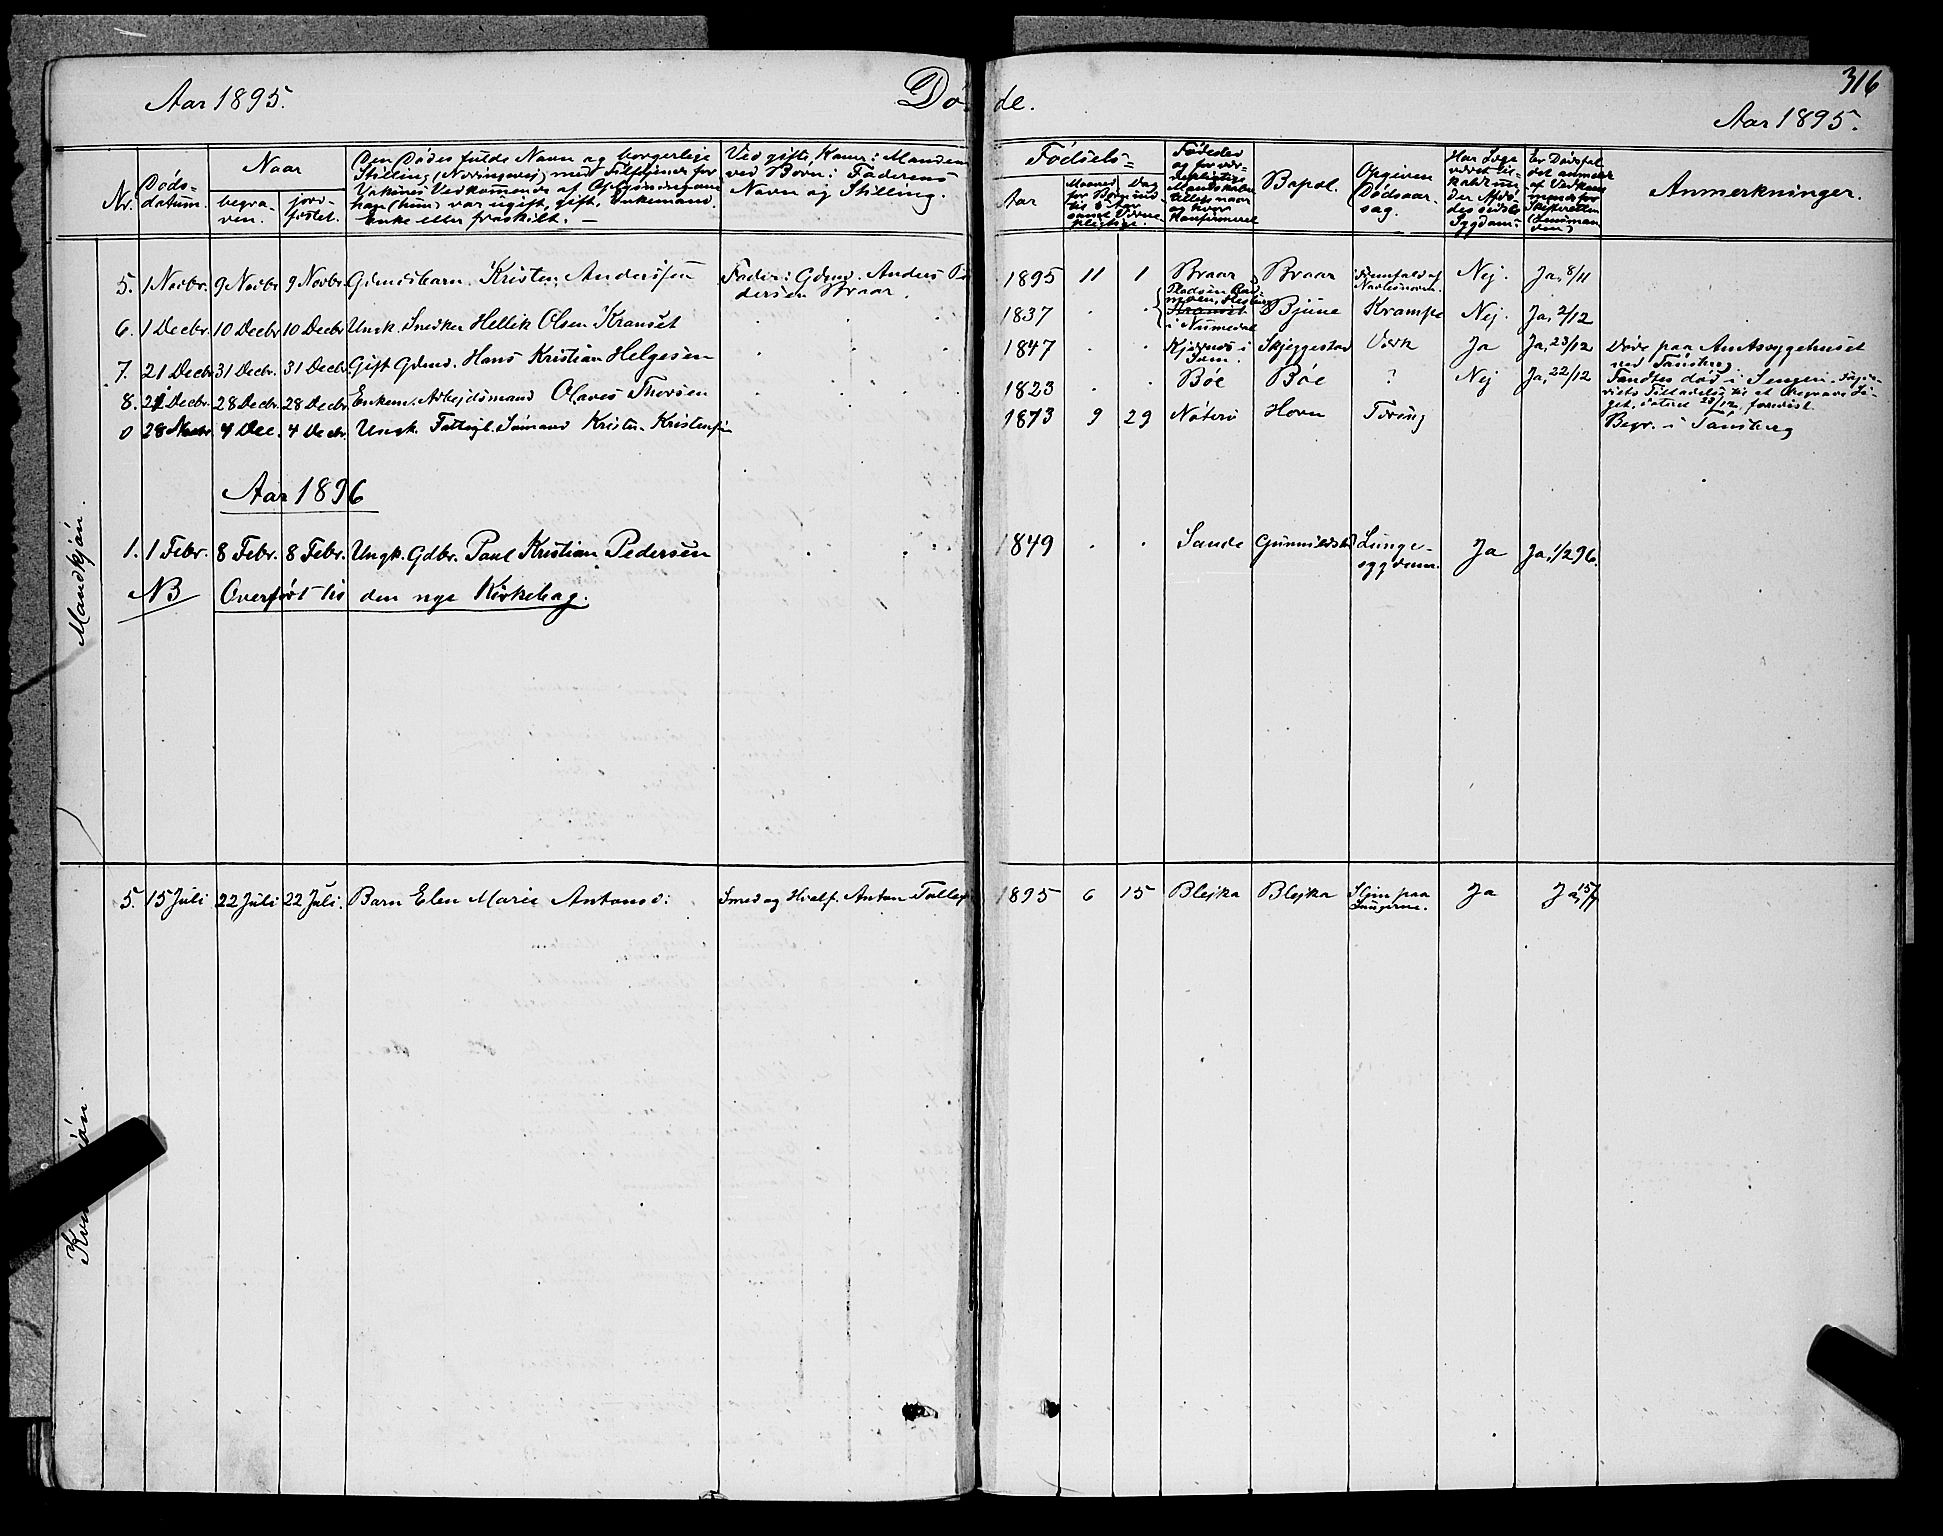 316
Aar 1895. Døde. Aar 1895.
Nr. Døds-datum. Naar begra-ven. jord-fæstet. Den Dødes fulde Navn og borgerlige Stilling (Næringsvei) med Tilføiende for Voksnes Vedkommende af Oplysning om han (hun) var ugift, gift, Enkemand, Enke eller fraskilt. Ved gifte Koner: Mandens, ved Børn: Faderens Navn og Stilling. Fødsels- Aar Maaned Dag Fødested Bopæl. Opgiven Dødsaar-sag. Anmerkninger.
Mandkjøn.
5. 1 Novbr. 9 Novbr 9 Novbr. Gdmdsbarn Kristen Anderssen Fader: Gdmd. Anders Pedersen Braar. 1895 11 1 Braar Braar Nej. Ja, 8/11
6. 1 Decbr. 10 Decbr 10 Decbr Ungk. Snedker Hellik Olsen Kranset 1837 . . Pladsen i Numedal Bjune Krampe Nej. Ja, 2/12
7. 21 Decbr 31 Decbr. 31 Decbr Gift Gdmd. Hans Kristian Helgesen 1847 . . Kjærnes i Sem. Skjeggestad Værk Ja Ja, 23/12 Døde paa Amtssygehuset ved Tønsberg
8. 21 Decbr. 28 Decbr. 28 Decbr Enkem. Arbejdsmand Olaves Thorsen 1823 . . Bøe Bøe ? Nej Ja, 22/12 Fandtes død i Sengen.
0 28 Novbr. 4 Dec. 4 Decbr. Ungk. Fattigl. Sømand Kristen Kristensen 1873 9 29 Nøterø Horn Tæring Begr. i Tønsberg
Aar 1896
1. 1 Febr. 8 Febr. 8 Febr. Ungk. Gdbr. Paul Kristian Pedersen . 1849 . . Sande Gunnildsbø Lunge-sygdom. Ja Ja, 1/2 96.
NB Overført til den nye Kirkebog.
Kvindekjøn.
5. 15 Juli 22 Juli 22 Juli. Barn Elen Marie Antonsd: Smed og Anton 1895 6 15 Blejka Blejka Slim paa Lungerne. Ja Ja, 15/7